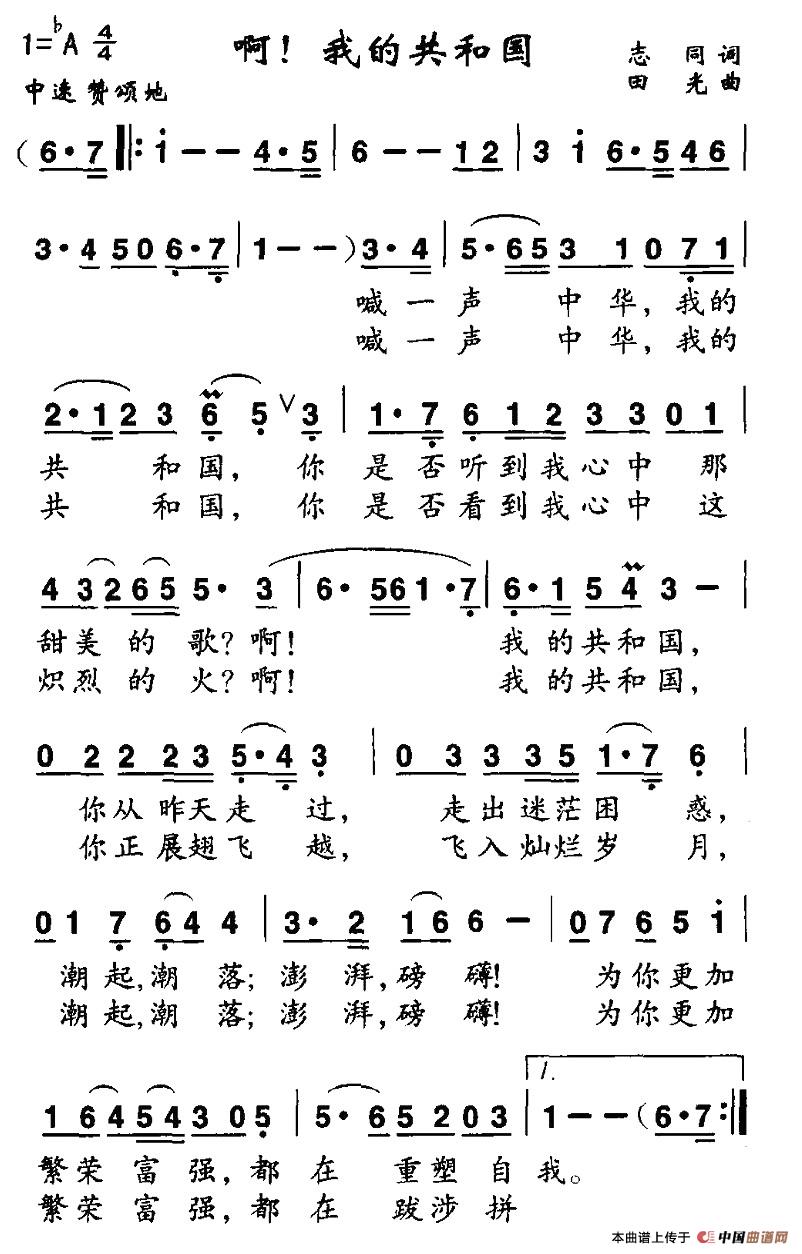 1=♭A 4/4 啊！我的共和国 志同词
中速 赞颂地 田光曲
(6·7 ‖: i - - 4·5 | 6 - - 12 | 3 i 6·5 46 |
3·4 50 6·7 | 1 - - ) 3·4 | 5·65 3 1 0 71 |
喊一声 中华，我的
喊一声 中华，我的
2·12 3 6 5 ∨ 3 | 1·7 6 12 3 3 0 1 |
共 和国，你 是否听到我心中 那
共 和国，你 是否看到我心中 这
4 32 65 5· 3 | 6· 561·7 | 6·1 5 4 3 - |
甜美的歌？啊！ 我的共和国，
炽烈的火？啊！ 我的共和国，
0 2 2 23 5·4 3 | 0 3 3 35 1·7 6 |
你从昨天走 过， 走出迷茫困 惑，
你正展翅飞 越， 飞入灿烂岁 月，
0 1 7 64 4 | 3·2 16 6 - | 0765 i |
潮起，潮 落；澎 湃，磅 礴！ 为你更加
潮起，潮 落；澎 湃，磅 礴！ 为你更加
1.
1 64 54 3 05 | 5·6 52 03 | 1 - - (6·7 :‖
繁荣 富强，都在 重塑自我。
繁荣 富强，都在 跋涉拼
本曲谱上传于 中国曲谱网